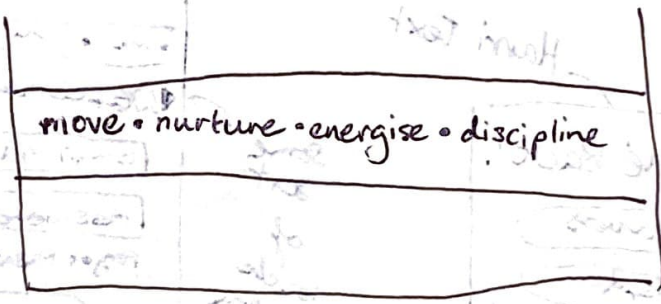 move • nurture • energise • discipline